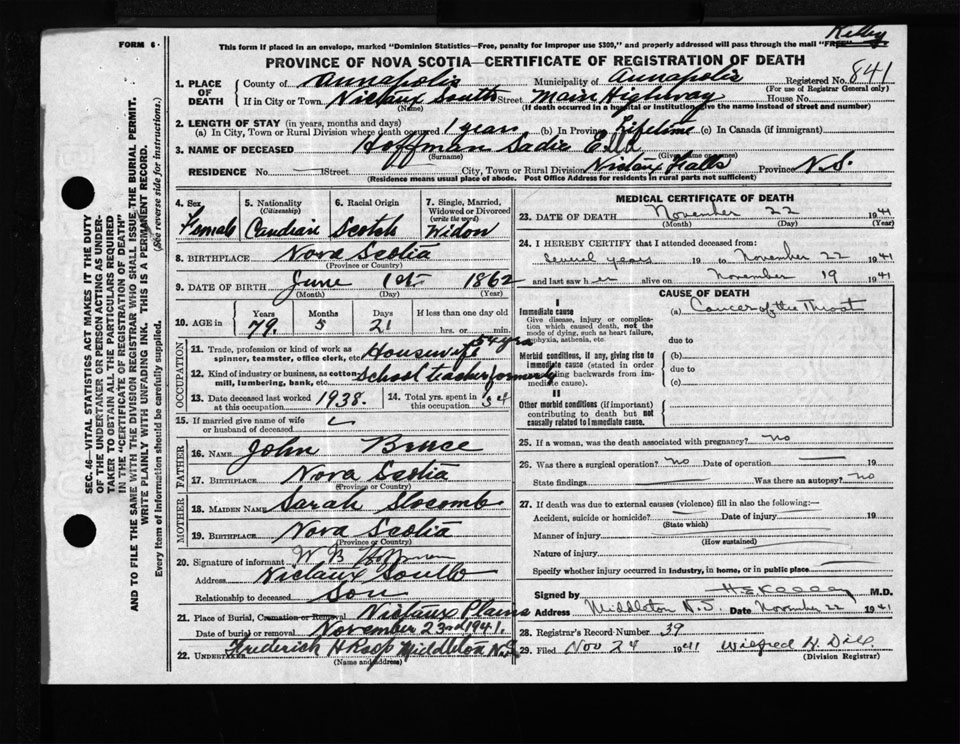 FORM 6.
Kelley
This form if placed in an envelope, marked "Dominion Statistics—Free, penalty for improper use $300," and properly addressed will pass through the mail "FREE"
PROVINCE OF NOVA SCOTIA—CERTIFICATE OF REGISTRATION OF DEATH
1. PLACE OF DEATH County of Annapolis Municipality of Annapolis Registered No. 841
(For use of Registrar General only)
If in City or Town Nictaux South Street Main Highway House No.
(Name) (If death occurred in a hospital or institution, give the name instead of street and number)
2. LENGTH OF STAY (in years, months and days)
(a) In City, Town or Rural Division where death occurred 1 year (b) In Province Lifetime (c) In Canada (if immigrant)
3. NAME OF DECEASED Hoffman Sadie
(Surname) (Given name or names)
RESIDENCE No. — Street City, Town or Rural Division Nictaux Falls Province N.S.
(Residence means usual place of abode. Post Office Address for residents in rural parts not sufficient)
4. Sex 5. Nationality (Citizenship) 6. Racial Origin 7. Single, Married, Widowed or Divorced (write the word)
Female Candian Scotch Widow
8. BIRTHPLACE Nova Scotia
(Province or Country)
9. DATE OF BIRTH June 1st 1862
(Month) (Day) (Year)
10. AGE in Years Months Days If less than one day old
79. 5 21 hrs. or min.
OCCUPATION
11. Trade, profession or kind of work as spinner, teamster, office clerk, etc. Housewife 54 yrs
12. Kind of industry or business, as cotton mill, lumbering, bank, etc. School teacher formerly
13. Date deceased last worked at this occupation 1938. 14. Total yrs. spent in this occupation
15. If married give name of wife or husband of deceased
FATHER
16. NAME John Bruce
17. BIRTHPLACE Nova Scotia
(Province or Country)
MOTHER
18. MAIDEN NAME Sarah Slocomb
19. BIRTHPLACE Nova Scotia
(Province or Country)
20. Signature of informant W B Hoffman
Address Nictaux South
Relationship to deceased Son
21. Place of Burial, Cremation or Removal Nictaux Plains
Date of burial or removal November 23rd 1941.
22. UNDERTAKER Frederich H Roop Middleton N.S.
(Name and address)
MEDICAL CERTIFICATE OF DEATH
23. DATE OF DEATH November 22 1941
(Month) (Day) (Year)
24. I HEREBY CERTIFY that I attended deceased from:
several years 19 to November 22 1941
and last saw her alive on November 19 1941
CAUSE OF DEATH
I
Immediate cause (a) Cancer of the Throat
Give disease, injury or complication which caused death, not the mode of dying, such as heart failure, asphyxia, asthenia, etc.
due to
Morbid conditions, if any, giving rise to immediate cause (stated in order proceeding backwards from immediate cause).
(b)
due to
(c)
II
Other morbid conditions (if important) contributing to death but not causally related to immediate cause.
25. If a woman, was the death associated with pregnancy? no
26. Was there a surgical operation? no Date of operation — 19
State findings — Was there an autopsy? no
27. If death was due to external causes (violence) fill in also the following:—
Accident, suicide or homicide? — Date of injury — 19
(State which)
Manner of injury
(How sustained)
Nature of injury
Specify whether injury occurred in industry, in home, or in public place
Signed by M.D.
Address Middleton N.S. Date November 22 1941
28. Registrar's Record Number 39
29. Filed Nov 24 1941 Wilfred H. Dill
(Division Registrar)
SEC. 46—VITAL STATISTICS ACT MAKES IT THE DUTY
OF THE UNDERTAKER OR PERSON ACTING AS UNDER-
TAKER TO OBTAIN ALL THE PARTICULARS REQUIRED
IN THE "CERTIFICATE OF REGISTRATION OF DEATH"
AND TO FILE THE SAME WITH THE DIVISION REGISTRAR WHO SHALL ISSUE THE BURIAL PERMIT.
WRITE PLAINLY WITH UNFADING INK. THIS IS A PERMANENT RECORD.
Every item of Information should be carefully supplied. (See reverse side for instructions.)